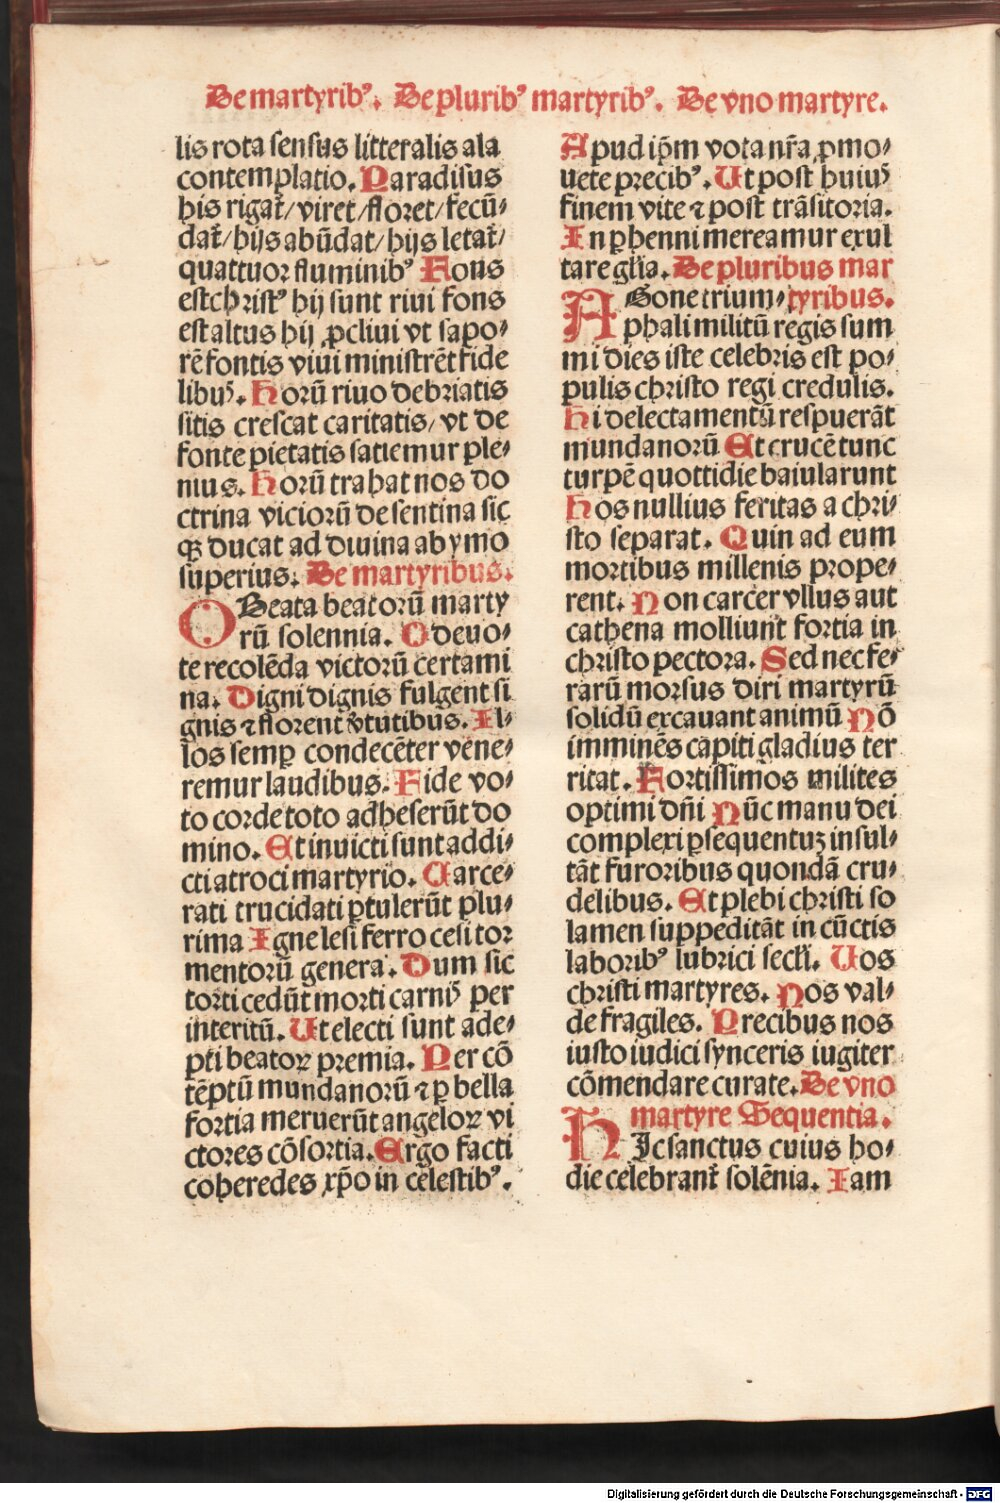 De martyribꝰ. De pluribꝰ martyribꝰ. De vno martyre.
lis rota sensus litteralis ala
contemplatio. Paradisus
his rigat̄/ viret/ floret/ fecū⸗
dat̄/ hijs abūdat/ hijs letat̄/
quattuor fluminibꝰ Fons
est christꝰ hij sunt riui fons
est altus hij ꝓcliui vt sapo⸗
rē fontis viui ministrēt fide
libuꝰ. Horū riuo debriatis
sitis crescat caritatis/ vt de
fonte pietatis satiemur ple⸗
nius. Horū trahat nos do
ctrina viciorū de sentina sic
qꝫ ducat ad diuina ab ymo
superius. De martyribus.
O Beata beatorū marty
rū solennia. O deuo⸗
te recolēda victorū certami
na. Digni dignis fulgent si
gnis ⁊ florent v̄tutibus. Il⸗
los semꝑ condecēter vene⸗
remur laudibus. Fide vo⸗
to corde toto adheserūt do
mino. Et inuicti sunt addi⸗
cti atroci martyrio. Carce⸗
rati trucidati ꝑtulerūt plu⸗
rima Igne lesi ferro cesi tor
mentorū genera. Dum sic
torti cedūt morti carniꝰ per
interitū. Ut electi sunt ade⸗
pti beatoꝝ premia. Per cō
tēptū mundanorū ⁊ ꝑ bella
fortia meruerūt angeloꝝ vi
ctores cōsortia. Ergo facti
coheredes xp̄o in celestibꝰ.
Apud ip̄m vota nr̄a ꝓmo⸗
uete precibꝰ. Ut post huiuꝰ
finem vite ⁊ post trāsitoria.
In ꝑhenni mereamur exul
tare gl̄ia. De pluribus mar
AGone trium⸗ tyribus.
phali militū regis sum
mi dies iste celebris est po⸗
pulis christo regi credulis.
Hi delectamentū respuerāt
mundanorū Et crucē tunc
turpē quottidie baiularunt
Hos nullius feritas a chri⸗
sto separat. Quin ad eum
mortibus millenis prope⸗
rent. Non carcer vllus aut
cathena molliunt fortia in
christo pectora. Sed nec fe⸗
rarū morsus diri martyrū
solidū excauant animū Nō
imminēs capiti gladius ter
ritat. Fortissimos milites
optimi dn̄i Nūc manu dei
complexi ꝑsequentuꝫ insul⸗
tāt furoribus quondā cru⸗
delibus. Et plebi christi so
lamen suppeditāt in cūctis
laboribꝰ lubrici secl̄i. Uos
christi martyres. Nos val⸗
de fragiles. Precibus nos
iusto iudici synceris iugiter
cōmendare curate. De vno
martyre Sequentia.
HIc sanctus cuius ho⸗
die celebrant̄ solēnia. Iam
Digitalisierung gefördert durch die Deutsche Forschungsgemeinschaft - DFG